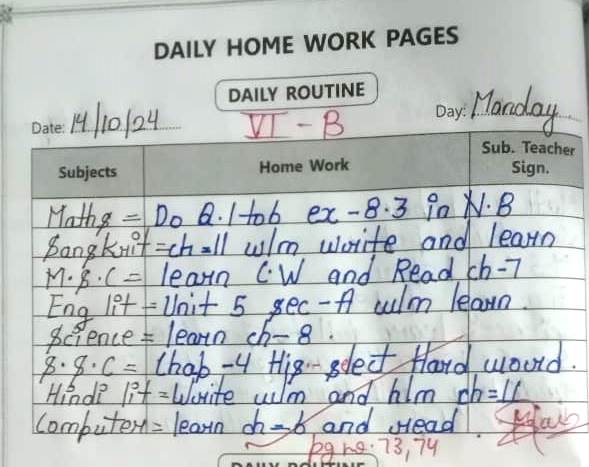 DAILY HOME WORK PAGES
DAILY ROUTINE
Date: 14/10/24 Day: Monday
VI - B
Subjects Home Work Sub. Teacher Sign.
Maths = Do Q.1 to 6 ex - 8.3 in N.B
Sanskrit = ch = 11 w/m write and learn
M.S.C = learn C.W and Read ch-7
Eng lit - Unit 5 sec - A w/m learn.
Science = learn ch - 8.
S.S.C = Chap - 4 His - select Hard word.
Hindi lit = Write w/m and h/m ch = 11
Computer = learn ch - 6 and read.
pg no. 73, 74
DAILY ROUTINE